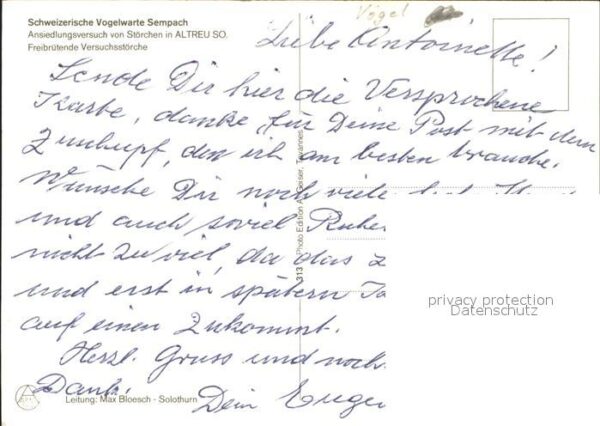 Vögel
Schweizerische Vogelwarte Sempach
Ansiedlungsversuch von Störchen in ALTREU SO.
Freibrütende Versuchsstörche
Liebe Antoinette!
Sende Dir hier die Versprochene
Karte, danke für Deine Post mit dem
den ich am besten brauche.
Wünsche Dir noch viele
und auch soviel Ruhe
nicht zu viel, da das
und erst in spätern
auf einen Zukommt.
Herzl. Gruss und noch
Dank.
Dein
Leitung: Max Bloesch - Solothurn
313 Photo Edition A.
privacy protection
Datenschutz